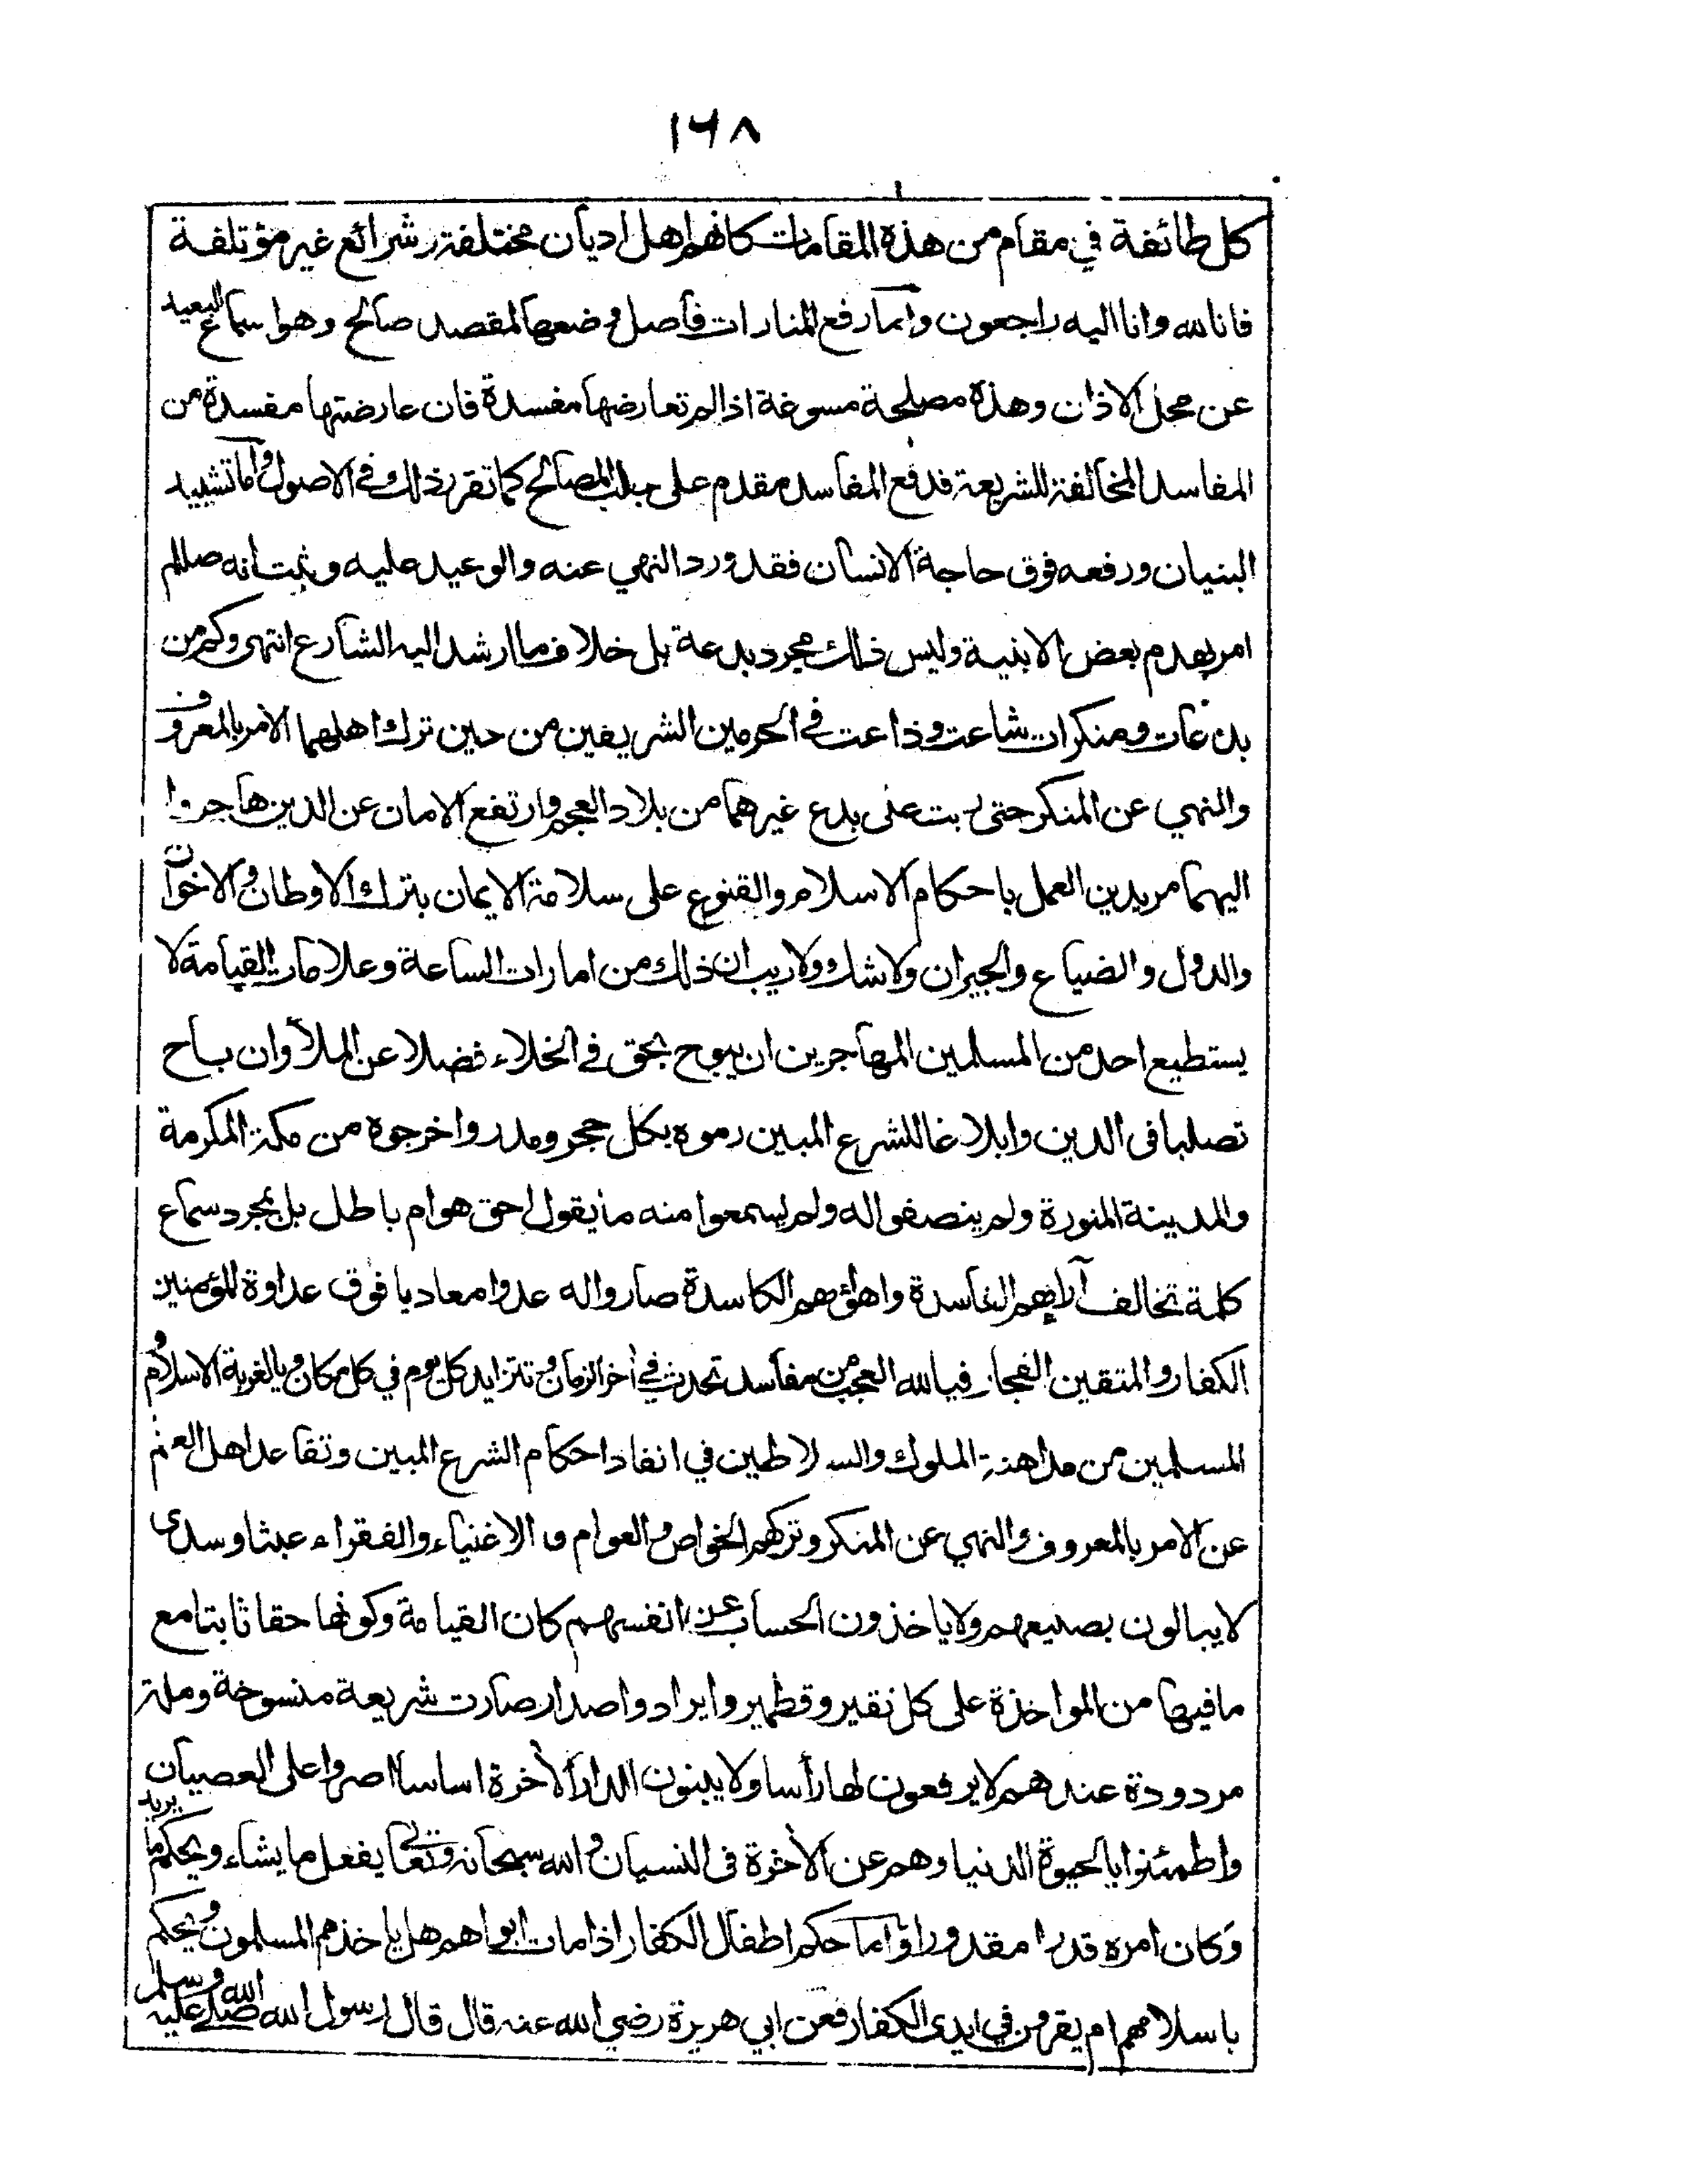 ١٦٨
كل طائفة في مقام من هذه المقامات كانهم اهل اديان مختلفة وشرائع غير مؤتلفة
فانا لله وانا اليه راجعون واما رفع المنارات فاصل وضعها لمقصد صالح وهو اسماع البعيد
عن محل الاذان وهذه مصلحة مسوغة اذا لم تعارضها مفسدة فان عارضتها مفسدة من
المفاسد المخالفة للشريعة فدفع المفاسد مقدم على جلب المصالح كما تقرر ذلك في الاصول واما تشييد
البنيان ورفعه فوق حاجة الانسان فقد ورد النهي عنه والوعيد عليه وثبت انه صللم
امر بهدم بعض الابنية وليس ذلك مجرد بدعة بل خلاف ما ارشد اليه الشارع انتهى وكم من
بدعات ومنكرات شاعت وذاعت في الحرمين الشريفين من حين ترك اهلهما الامر بالمعروف
والنهي عن المنكر حتى ربت على بدع غيرهما من بلاد العجم وارتفع الامان عن الذين هاجروا
اليهما مريدين العمل باحكام الاسلام والقنوع على سلامة الايمان بترك الاوطان والاخوان
والدول والضياع والجيران ولا شك ولا ريب ان ذلك من امارات الساعة وعلامات القيامة لا
يستطيع احد من المسلمين المهاجرين ان يبوح بحق في الخلاء فضلا عن الملأ وان باح
تصلبا فى الدين وابلاغا للشرع المبين رموه بكل حجر ومدر واخرجوه من مكة المكرمة
والمدينة المنورة ولم ينصفوا له ولم يستمعوا منه ما يقول احق هو ام باطل بل بمجرد سماع
كلمة تخالف آراءهم الفاسدة واهواءهم الكاسدة صاروا له عدوا معاديا فوق عداوة للمؤمنين
الكفار والمتقين الفجار فيا لله العجب من مفاسد تحدث في اخر الزمان وتتزايد كل يوم في كل مكان ويا لغربة الاسلام و
المسلمين من مداهنة الملوك والسلاطين في انفاد احكام الشرع المبين وتقاعد اهل العلم
عن الامر بالمعروف والنهي عن المنكر وتركهم الخواص والعوام والاغنياء والفقراء عبثا وسدى
لا يبالون بصنيعهم ولا ياخذون الحساب عن انفسهم كان القيامة وكونها حقا ثابتا مع
ما فيها من المواخذة على كل نقير وقطمير وايراد واصدار صارت شريعة منسوخة وملة
مردودة عندهم لا يرفعون لها رأسا ولا يبنون الدار الأخرة اساسا اصروا على العصيان
واطمئنوا بالحيوة الدنيا وهم عن الأخرة فى النسيان والله سبحانه وتعالى يفعل ما يشاء ويحكم ما يريد
وكان امره قدرا مقدورا واما حكم اطفال الكفار اذا مات ابواهم هل ياخذهم المسلمون ويحكم
باسلامهم ام يقرون في ايدى الكفار فعن ابي هريرة رضي الله عنه قال قال رسول الله صلى الله عليه وسلم